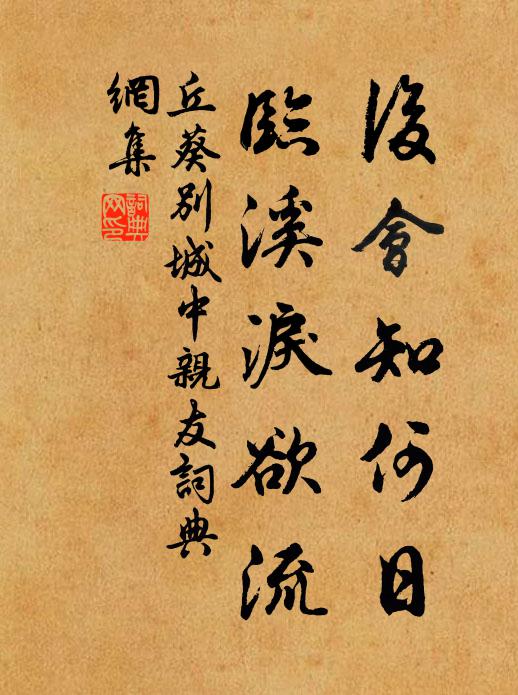 後會知何日
臨溪淚欲流
丘葵別城中親友詞典
網集
詞典
网印